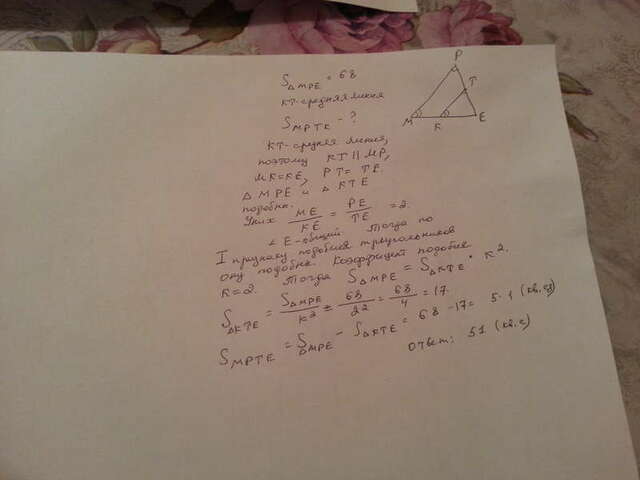 S△MPE = 68
KT-средняя линия
S MPTK - ?
KT-средняя линия,
поэтому KT || MP,
MK=KE, PT = TE.
△ MPE и △ KTE
подобны.
У них ME/KE = PE/TE = 2.
∠ E-общий Тогда по
I признаку подобия треугольников
они подобны. Коэффициент подобия
K=2. Тогда S△MPE = S△KTE · K².
S△KTE = S△MPE/K² = 68/2² = 68/4 = 17.
S MPTE = S△MPE - S△KTE = 68 - 17 = 51 (кв.ед)
Ответ: 51 (кв.с)
P
T
M
K
E